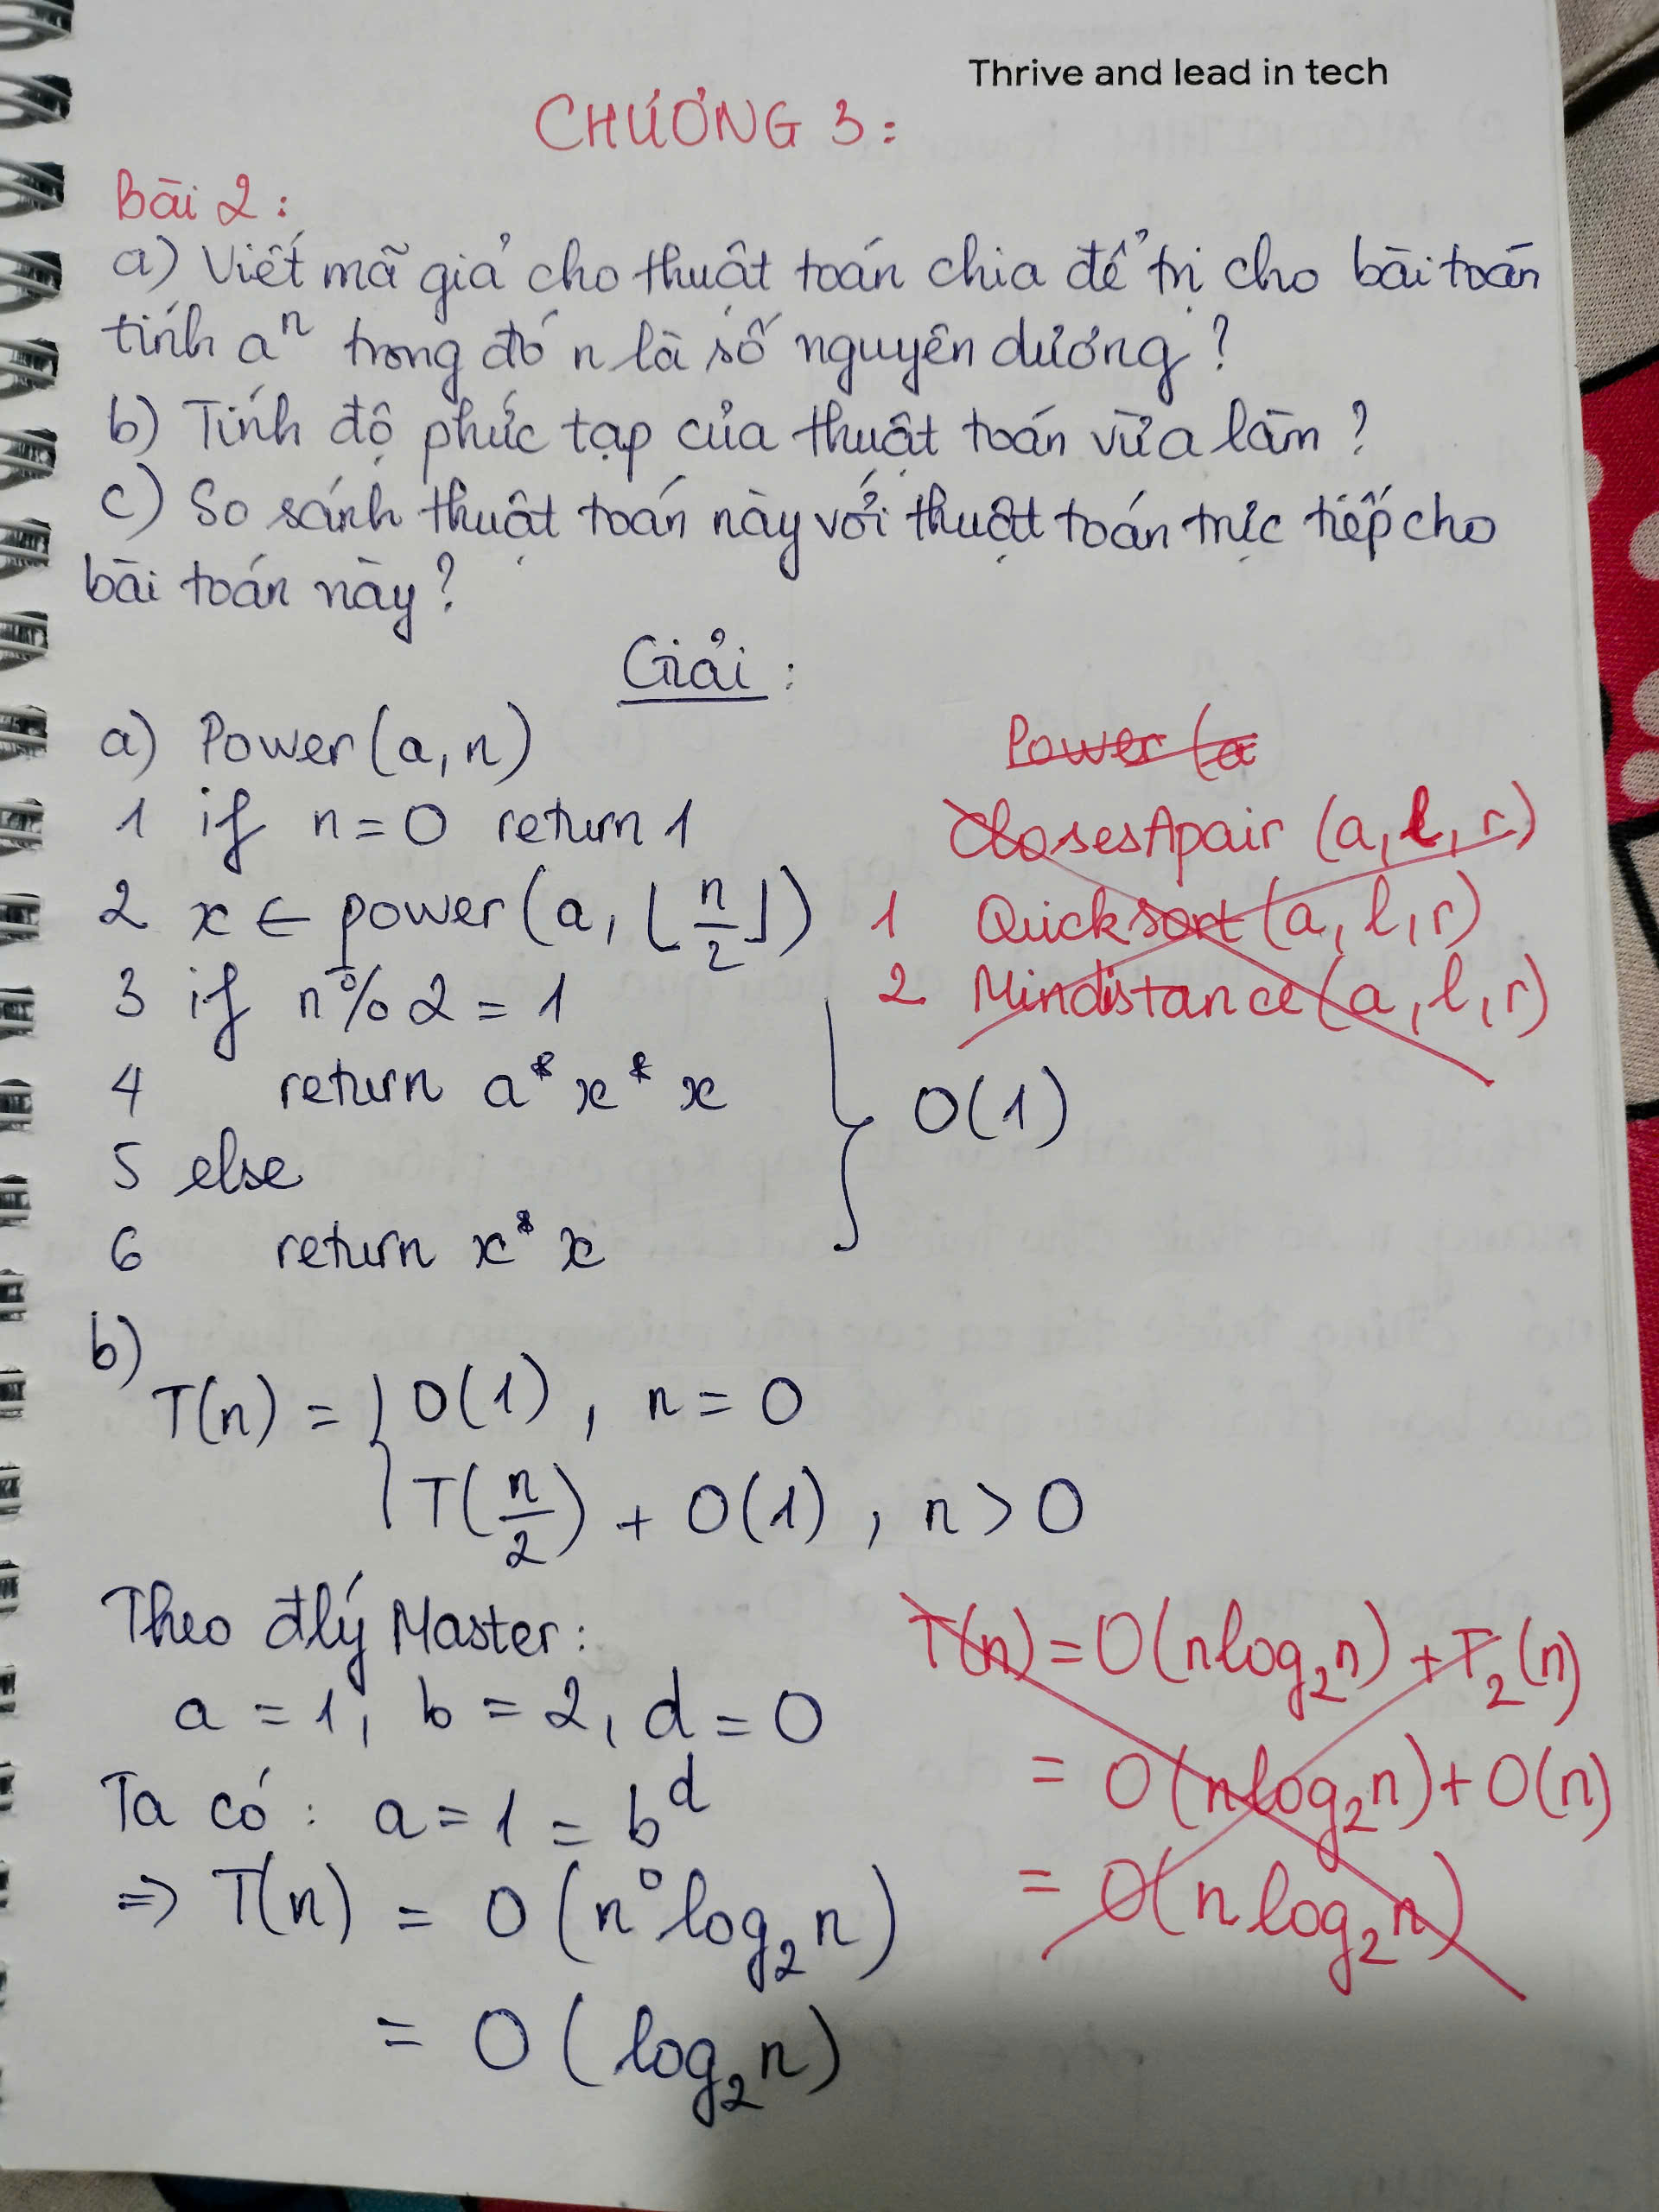 Thrive and lead in tech
CHƯƠNG 3:
Bài 2:
a) Viết mã giả cho thuật toán chia để trị cho bài toán
tính aⁿ trong đó n là số nguyên dương?
b) Tính độ phức tạp của thuật toán vừa làm?
c) So sánh thuật toán này với thuật toán trực tiếp cho
bài toán này?
Giải:
a) Power(a, n)
1 if n = 0 return 1
2 x ← power(a, ⌊n/2⌋)
3 if n % 2 = 1
4 return a * x * x
5 else
6 return x * x
O(1)
Power(a
ClosestApair (a, l, r)
1 Quicksort(a, l, r)
2 Mindistance(a, l, r)
b)
T(n) = { O(1), n = 0
T(n/2) + O(1), n > 0
Theo đlý Master:
a = 1, b = 2, d = 0
Ta có: a = 1 = b^d
⇒ T(n) = O(n⁰log₂n)
= O(log₂n)
T(n) = O(nlog₂n) + T₂(n)
= O(nlog₂n) + O(n)
= O(nlog₂n)